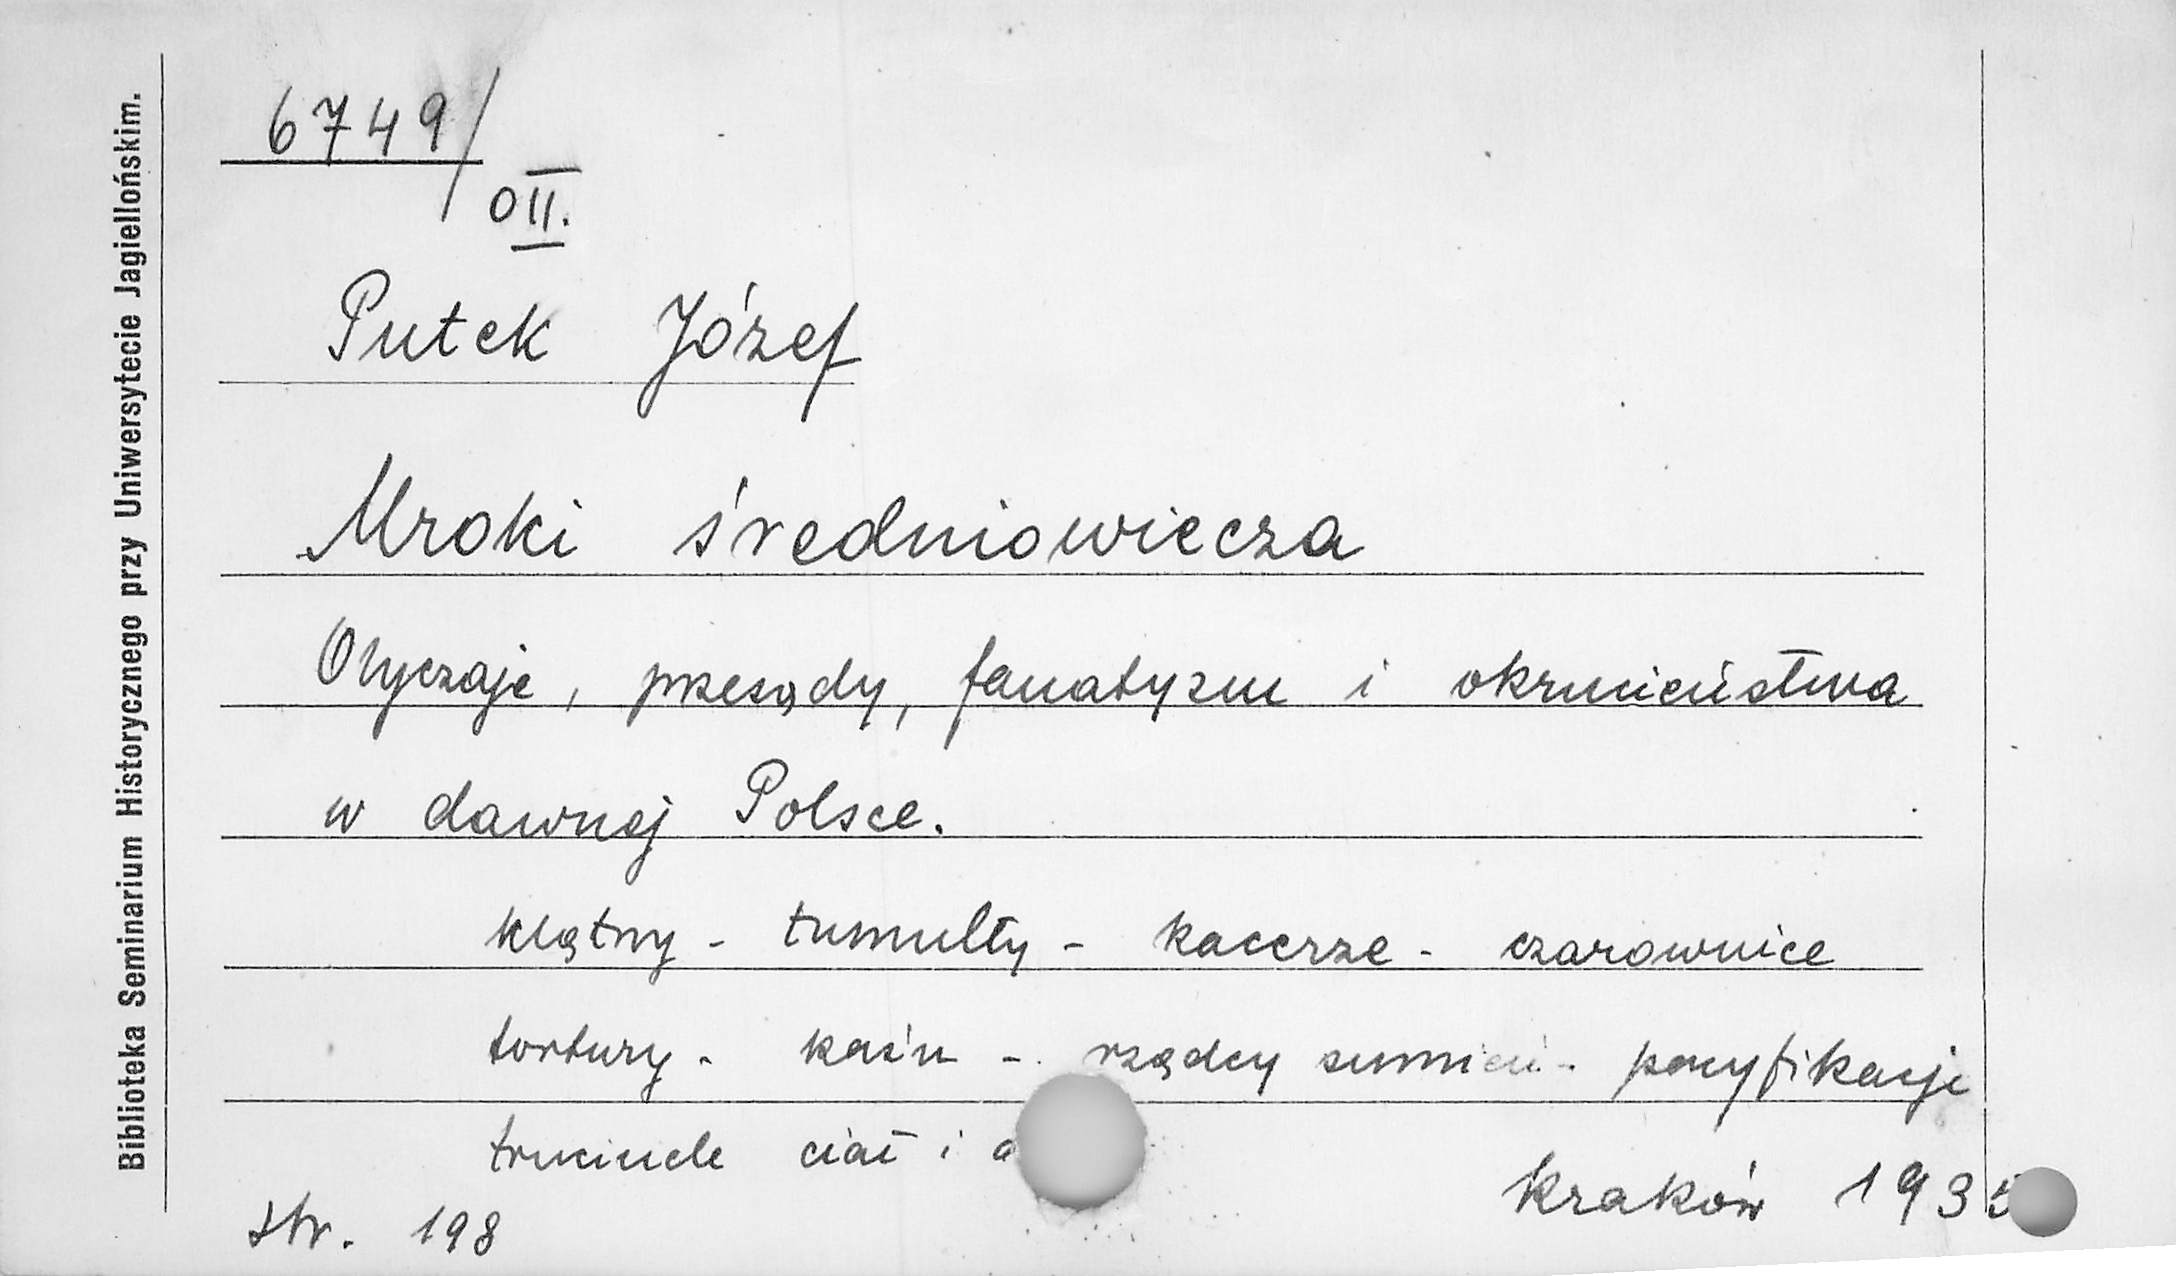 Biblioteka Seminarium Historycznego przy Uniwersytecie Jagiellońskim.
6749/
OII.
Putek Józef
Mroki średniowiecza
Obyczaje, przesądy, fanatyzm i okrucieństwa
w dawnej Polsce.
klątwy - tumulty - kacerze - czarownice
tortury - kaźń - rządcy sumień - pacyfikacje
truciciele ciał i
Kraków 1935
str. 198